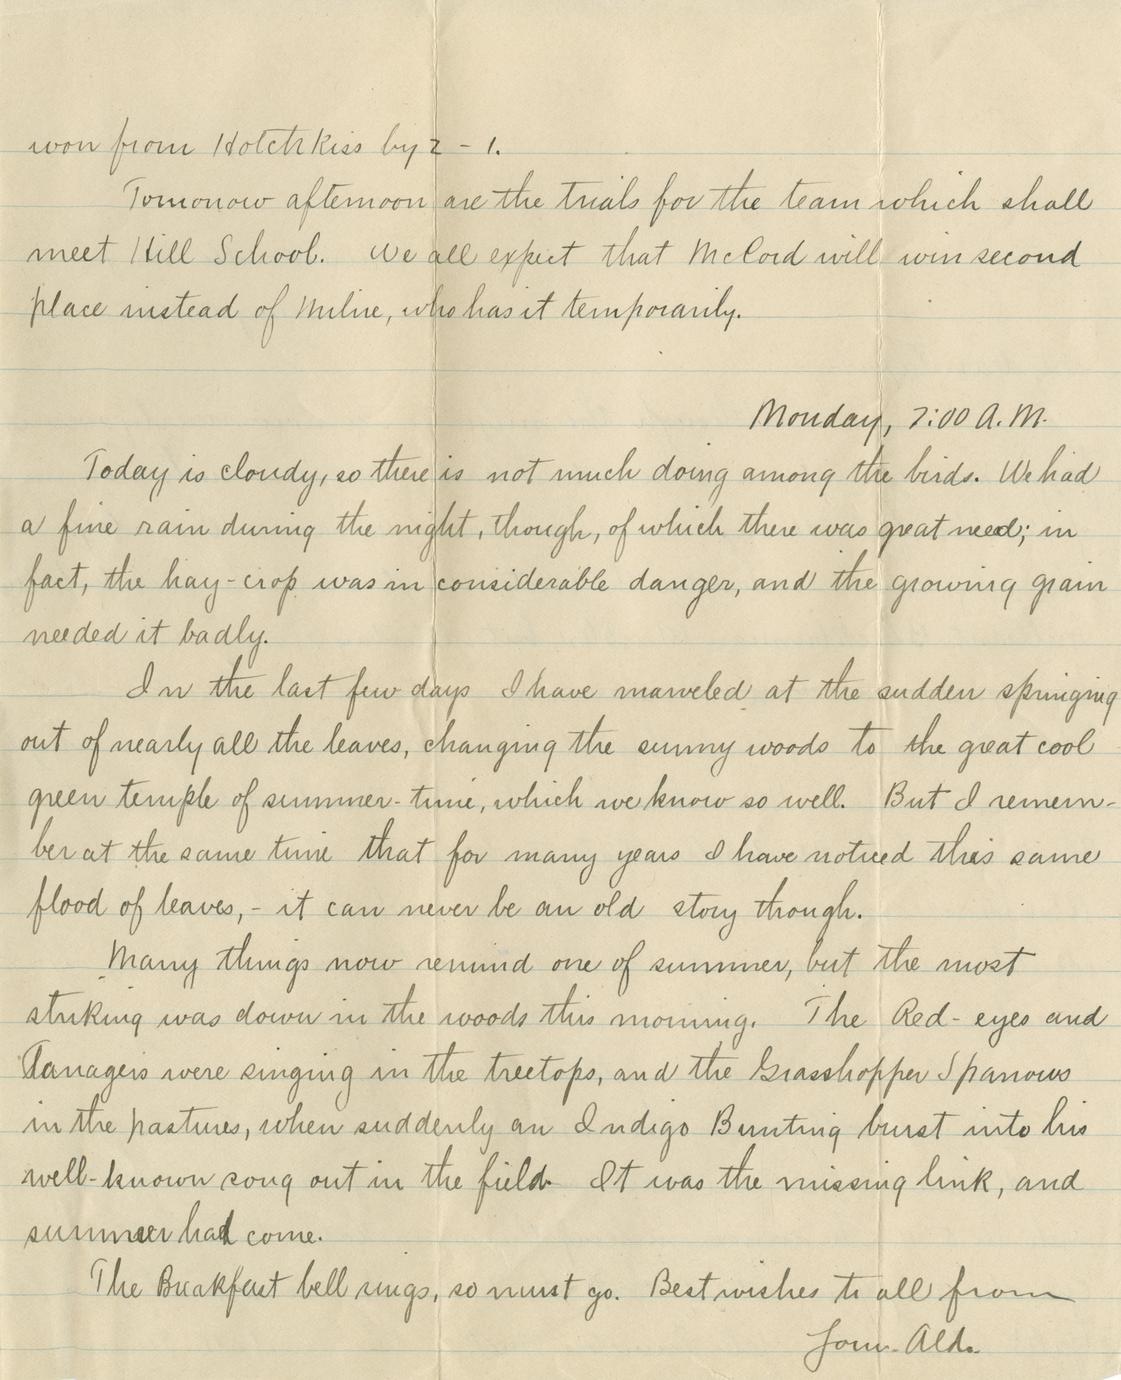 won from Hotchkiss by 2 - 1.
Tomorrow afternoon are the trials for the team which shall
meet Hill School. We all expect that McCord will win second
place instead of Milne, who has it temporarily.
Monday, 7:00 A.M.
Today is cloudy, so there is not much doing among the birds. We had
a fine rain during the night, though, of which there was great need; in
fact, the hay-crop was in considerable danger, and the growing grain
needed it badly.
In the last few days I have marveled at the sudden springing
out of nearly all the leaves, changing the sunny woods to the great cool
green temple of summer-time, which we know so well. But I remem-
ber at the same time that for many years I have noticed this same
flood of leaves, - it can never be an old story though.
Many things now remind one of summer, but the most
striking was down in the woods this morning. The Red-eyes and
Tanagers were singing in the treetops, and the Grasshopper Sparrows
in the pastures, when suddenly an Indigo Bunting burst into his
well-known song out in the field. It was the missing link, and
summer had come.
The Breakfast bell rings, so must go. Best wishes to all from
Ald.